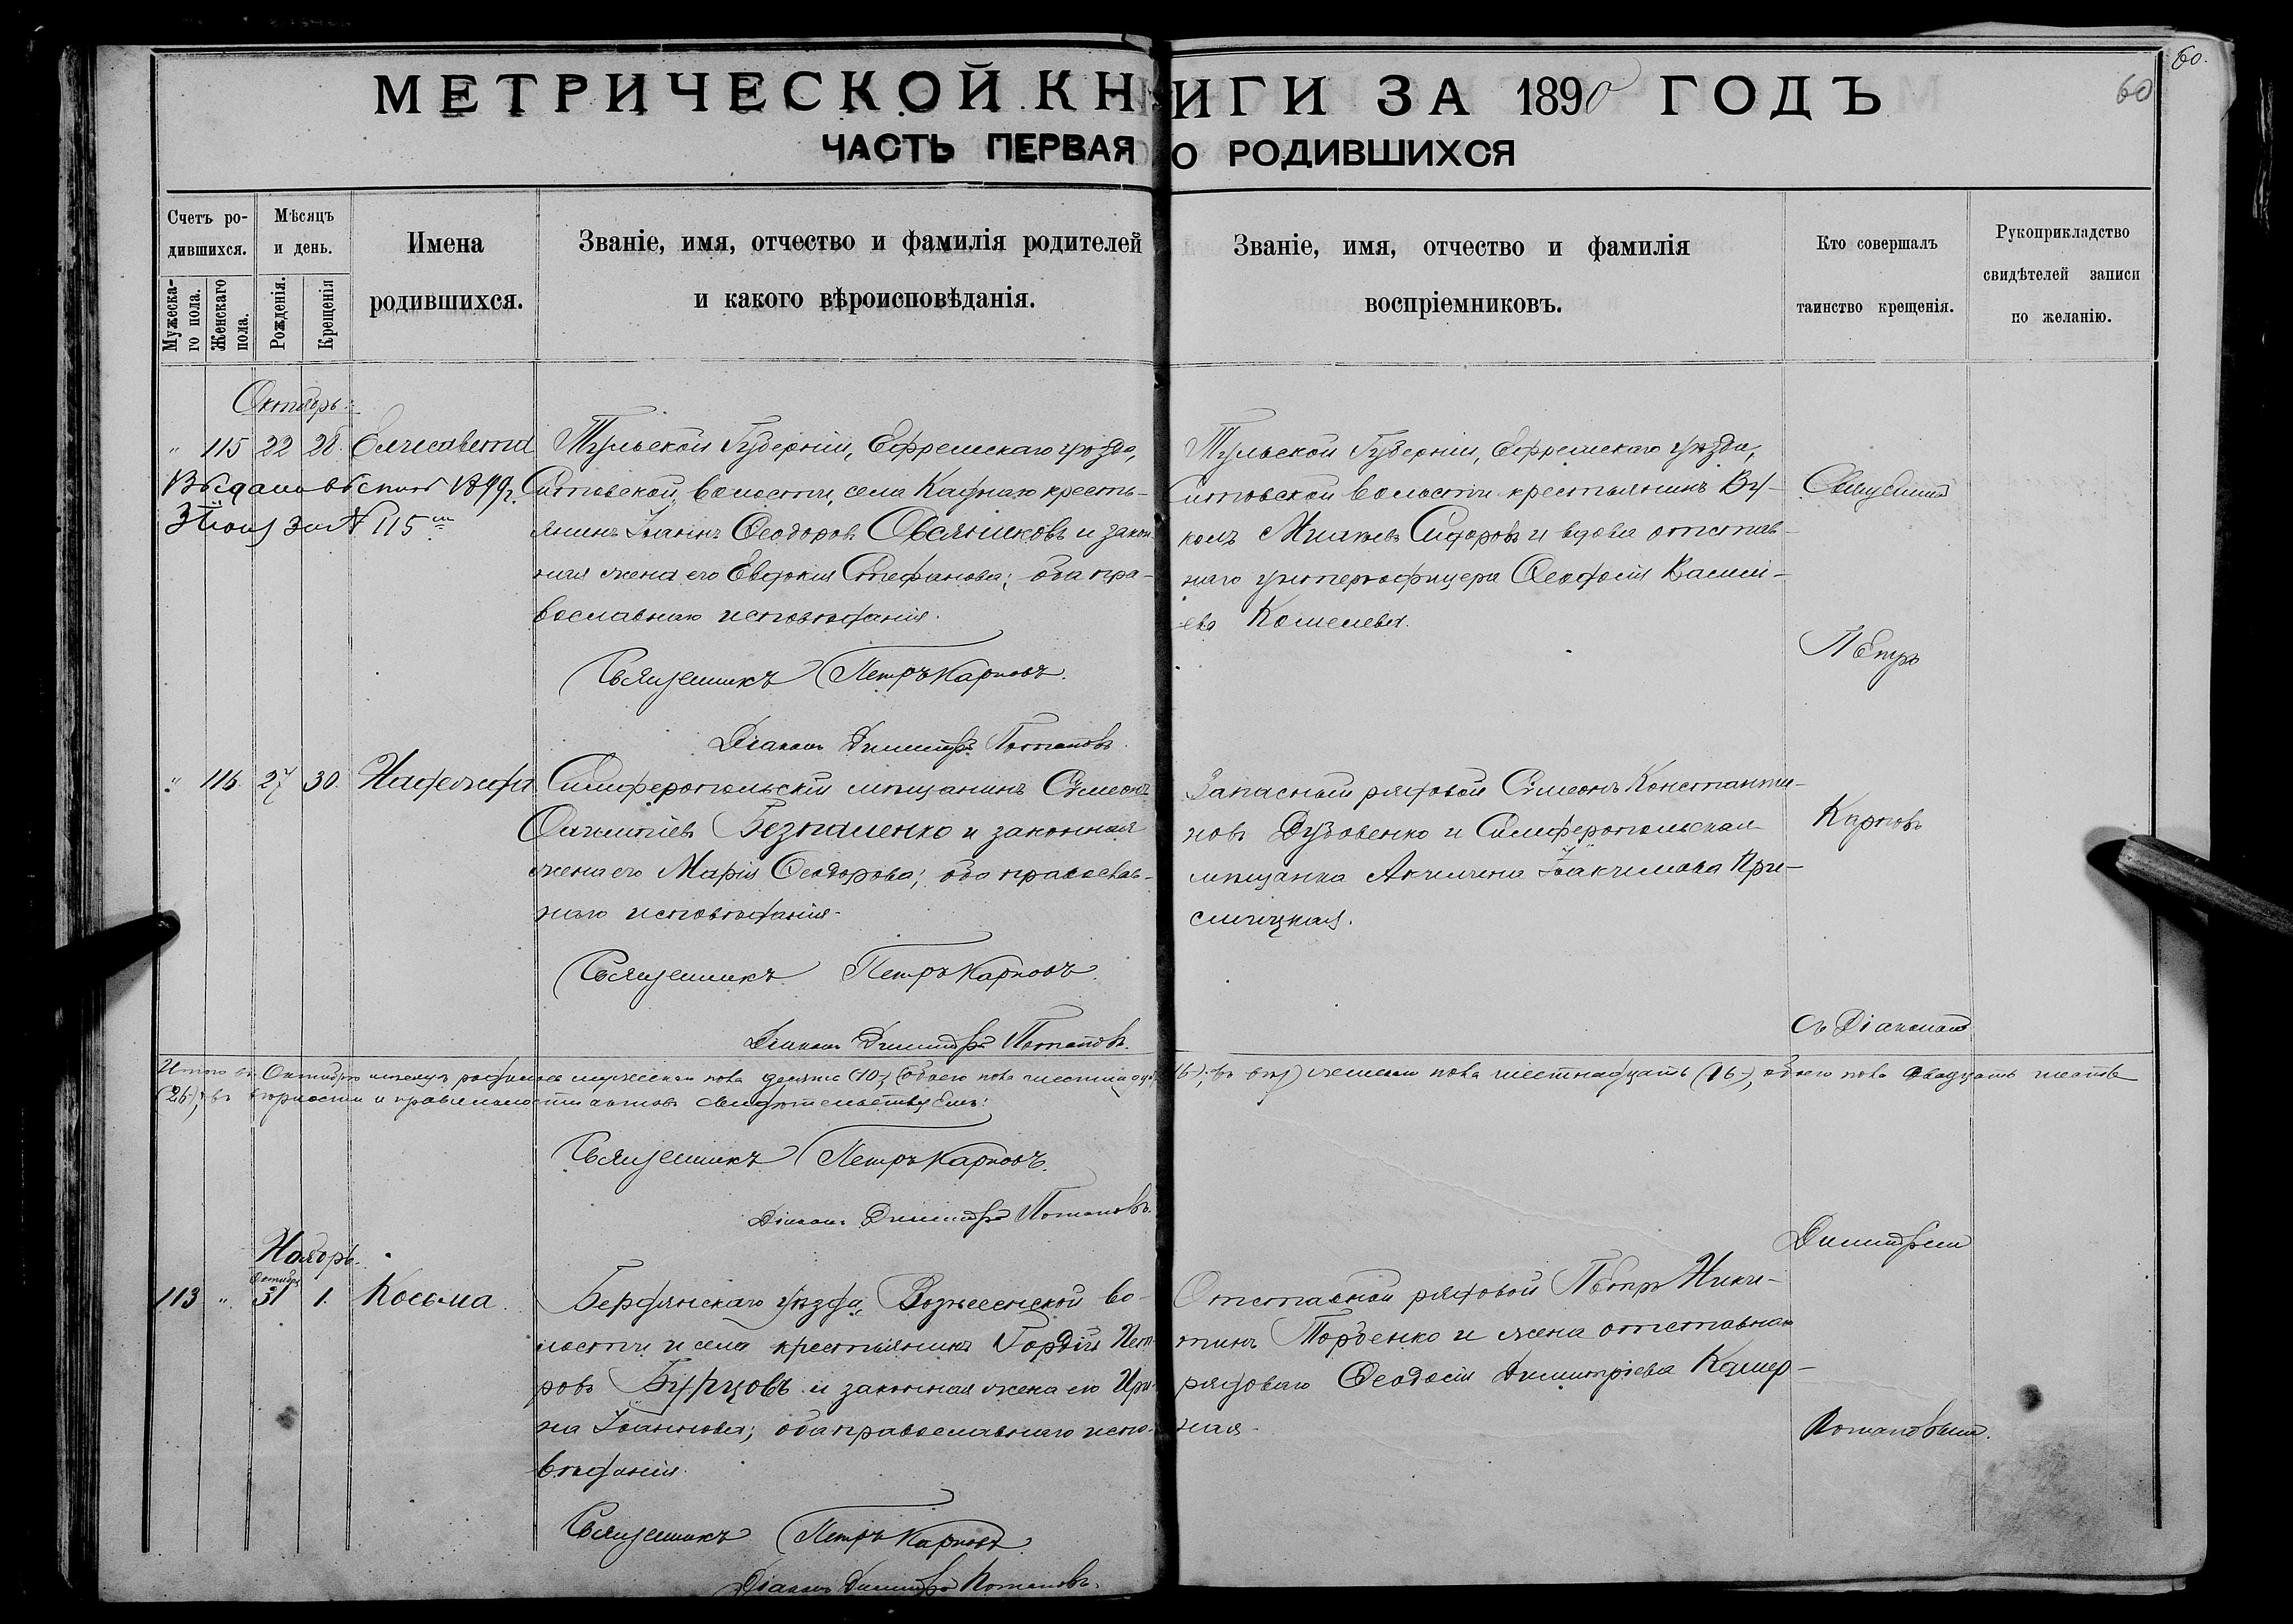 60.
60
МЕТРИЧЕСКОЙ КНИГИ ЗА 1890 ГОДЪ
ЧАСТЬ ПЕРВАЯ О РОДИВШИХСЯ
Счетъ ро-
дившихся.
Мужеска-
го пола.
Женскаго
пола.
Мѣсяцъ
и день.
Рожденія.
Крещенія
Имена
родившихся.
Званіе, имя, отчество и фамилія родителей
и какого вѣроисповѣданія.
Званіе, имя, отчество и фамилія
воспріемниковъ.
Кто совершалъ
таинство крещенія.
Рукоприкладство
свидѣтелей записи
по желанію.
Октябрь.
" 115 22 28. Елисавета
1899г.
За № 115
Тульской Губерніи, Ефремскаго уѣзда,
Ситовской волости, села Каднаго кресть-
янинъ Іоаннъ Ѳеодоровъ Овсянниковъ и закон
ная жена его Евдокія Стефанова; оба пра-
вославнаго исповѣданія.
Священникъ Петръ Карповъ.
Діаконъ Димитрій Потаповъ.
Тульской Губерніи, Ефремскаго уѣзда,
Ситовской волости крестьянинъ Ву-
колъ Сидоровъ и вдова отстав-
наго унтеръ-офицера Ѳеодосія Васили-
ева Кошелева.
Священникъ
Петръ
" 116. 27 30. Надежда
Симферопольскій мѣщанинъ Сѵмеонъ
Безпаленко и законная
жена его Марія Ѳеодорова; оба православ-
наго исповѣданія.
Священникъ Петръ Карповъ.
Діаконъ Димитрій Потаповъ.
Запасный рядовой Сѵмеонъ Константи-
новъ Дубовенко и Симферопольская
мѣщанка Акилина Іоакимова При-
слицкая.
Карповъ
съ Діакономъ
Итого въ Октябрѣ мѣсяцѣ родилось мужескаго пола десять (10), женскаго пола шестнадцать (16), обоего пола двадцать шесть
(26), въ вѣрности и правильности актовъ свидѣтельствуемъ:
Священникъ Петръ Карповъ.
Діаконъ Димитрій Потаповъ.
Димитріемъ
Ноябрь.
Октября
113 " 31 1. Косьма.
Бердянскаго уѣзда, Вознесенской во-
лости и села крестьянинъ Гордій Пет-
ровъ Бурцовъ и законная жена его Ири-
на Іоаннова; оба православнаго испо-
вѣданія.
Священникъ Петръ Карповъ.
Діаконъ Димитрій Потаповъ.
Отставной рядовой Петръ Ники-
тинъ Торбенко и жена отставнаго
рядоваго Ѳеодосія Димитріева Камер-
ная.
Потаповымъ.